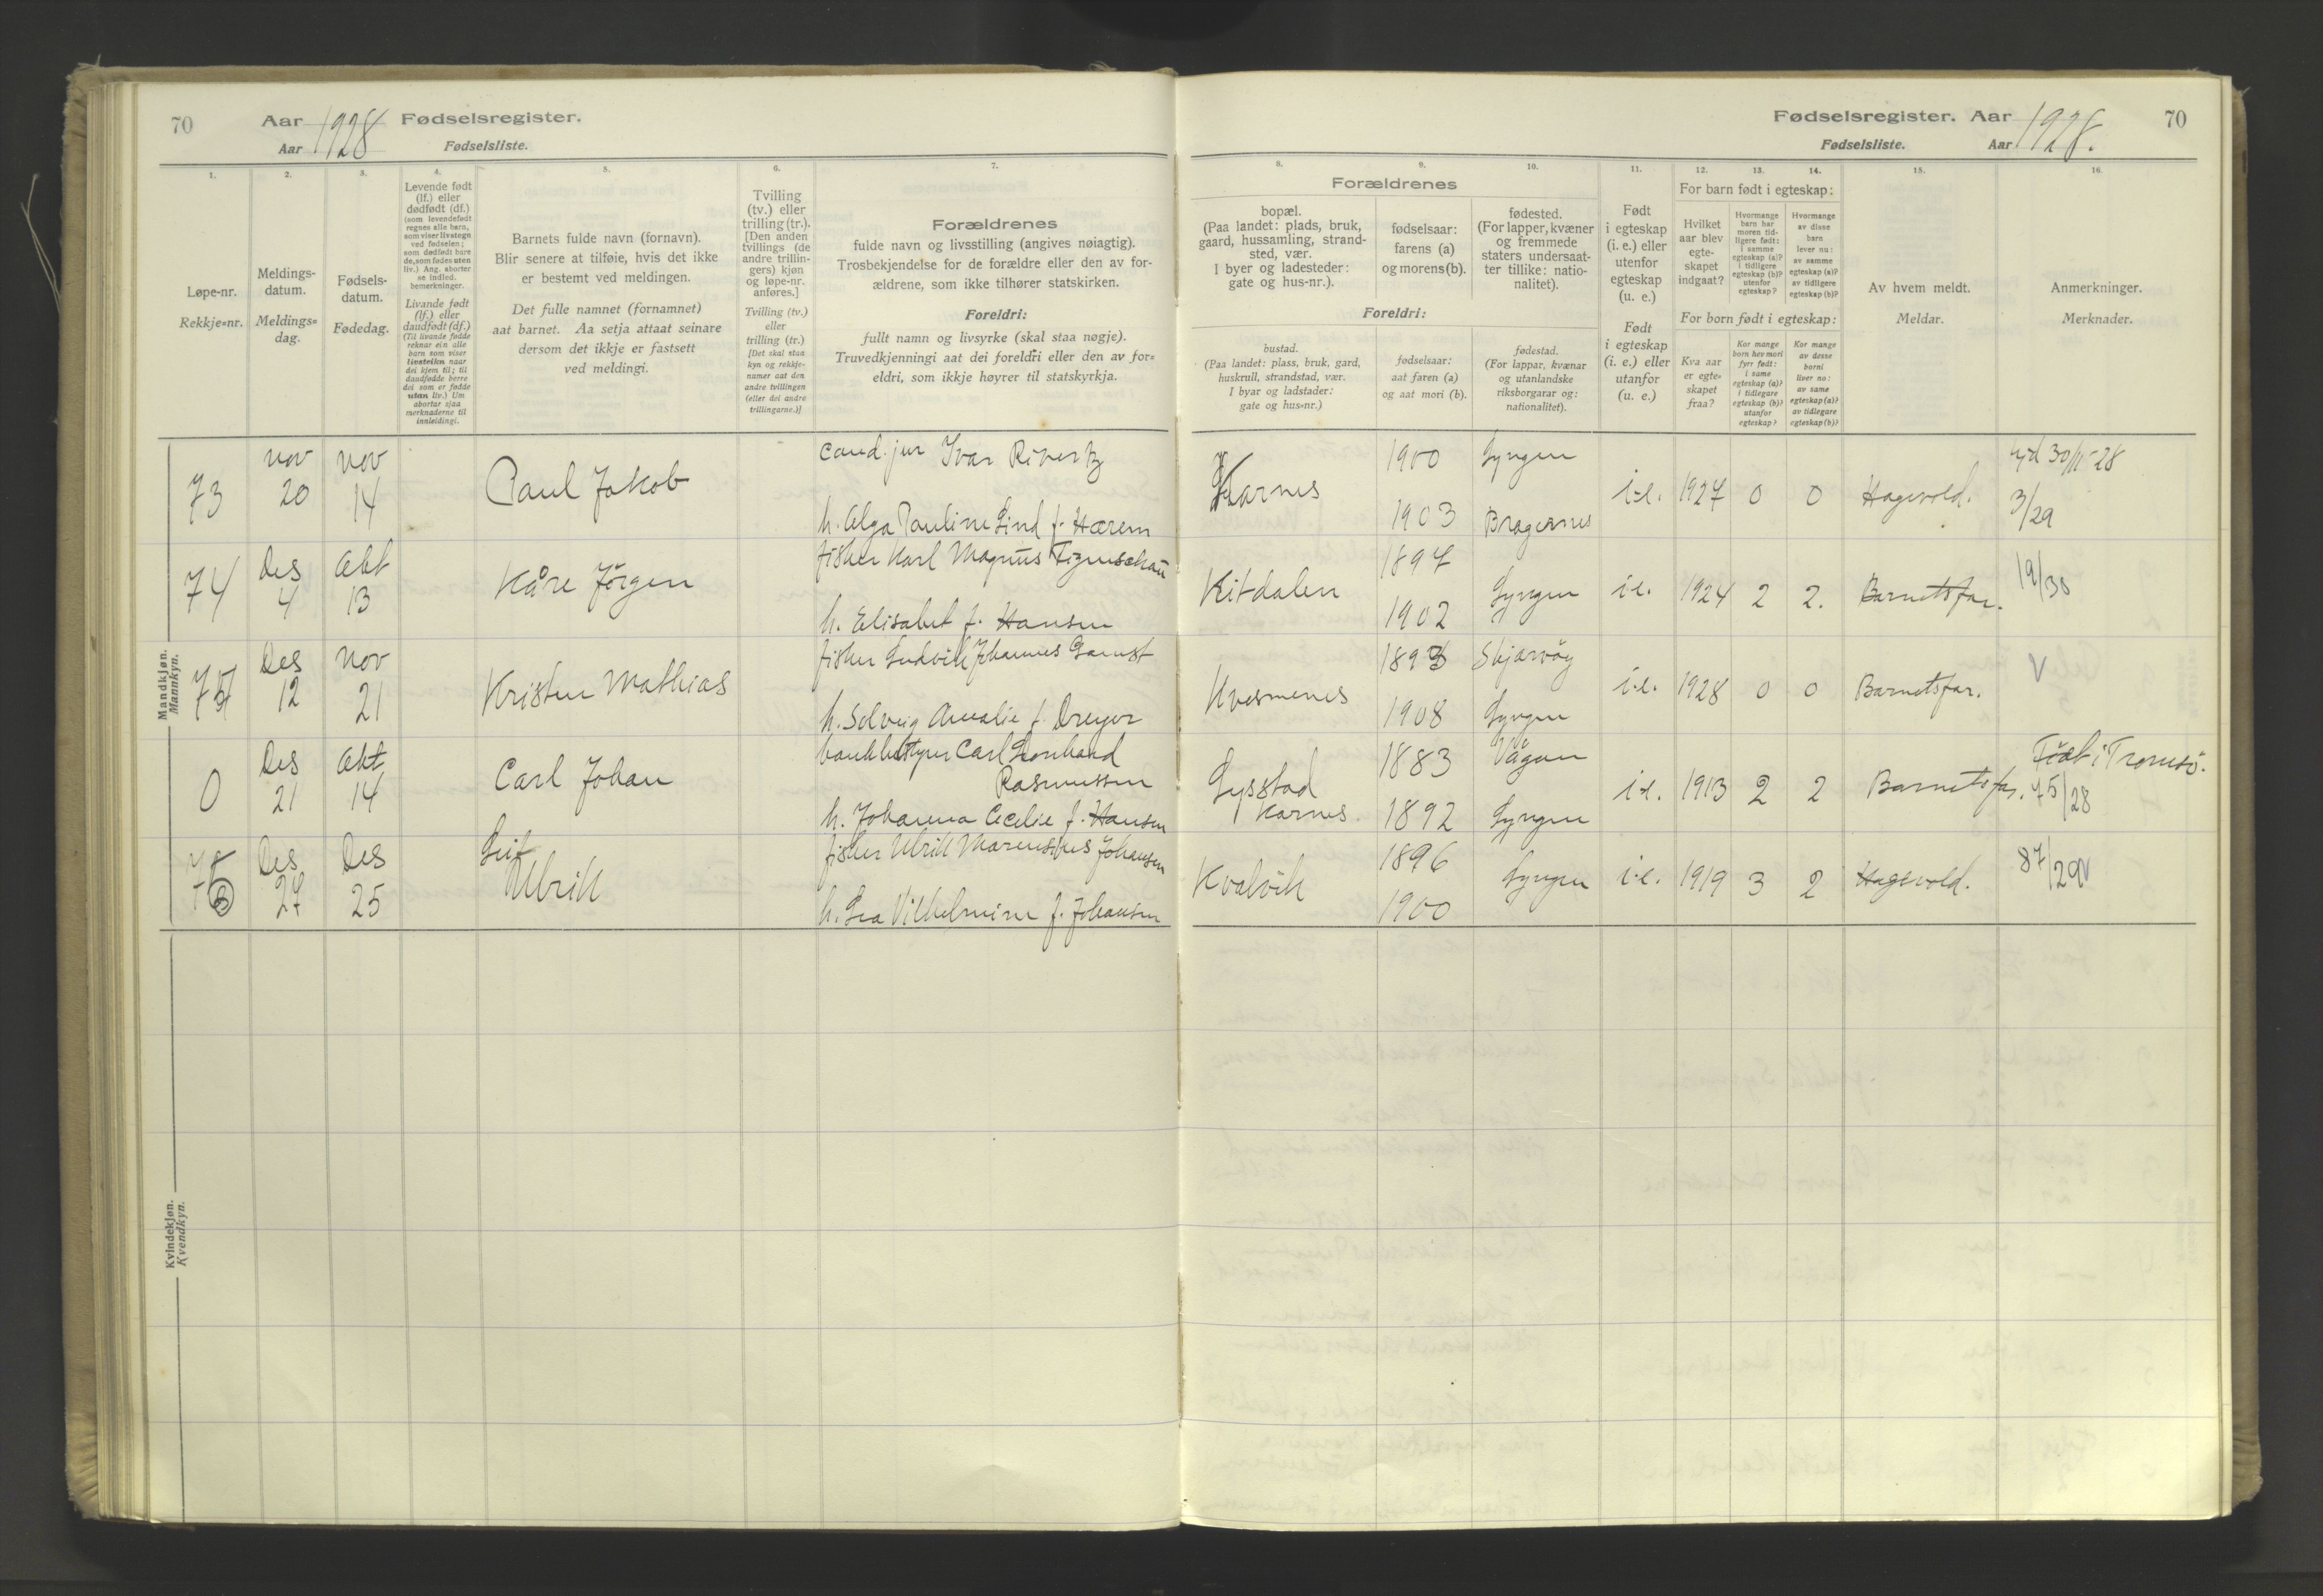 70
Aar 1928 Fødselsregister.
Aar Fødselsliste.
1.
2.
3.
4.
5.
6.
7.
Løpe-nr.
Rekkje=nr.
Meldings-
datum.
Meldings=
dag.
Fødsels-
datum.
Fødedag.
Levende født
(lf.) eller
dødfødt (df.)
(som levendefødt
regnes alle barn,
som viser livstegn
ved fødselen;
som dødfødt bare
de, som fødes uten
liv.) Ang. aborter
se indled.
bemerkninger.
Livande født
(lf.) eller
daudfødt (df.)
(Til livande fødde
reknar ein alle
barn som viser
livsteikn naar
dei kjem til; til
daudfødde berre
dei som er fødde
utan liv.) Um
abortar sjaa
merknaderne til
innleidingi.
Barnets fulde navn (fornavn).
Blir senere at tilføie, hvis det ikke
er bestemt ved meldingen.
Det fulle namnet (fornamnet)
aat barnet. Aa setja attaat seinare
dersom det ikkje er fastsett
ved meldingi.
Tvilling
(tv.) eller
trilling (tr.).
[Den anden
tvillings (de
andre trillin-
gers) kjøn
og løpe-nr.
anføres.]
Tvilling (tv.)
eller
trilling (tr.)
[Det skal staa
kyn og rekkje-
numer aat den
andre tvillingen
(eller dei andre
trillingarne.)]
Forældrenes
fulde navn og livsstilling (angives nøiagtig).
Trosbekjendelse for de forældre eller den av for-
ældrene, som ikke tilhører statskirken.
Foreldri:
fullt namn og livsyrke (skal staa nøgje).
Truvedkjenningi aat dei foreldri eller den av for=
eldri, som ikkje høyrer til statskyrkja.
Mandkjøn.
Mannkyn.
73
nov
20
nov
14
Paul Jakob
cand. jur Ivar Rivertz
h. Alga Pauline Lind f. Hærem
74
Des
4
Okt
13
Kåre Jörgen
fisker Karl Magnus
h. Elisabet f. Hansen
75
Des
12
Nov
21
Kristen Mathias
fisker Ludvik Johannes Garnst
h. Solveig Amalie f. Dreyer
0
Des
21
Okt
14
Carl Johan
bankbestyrer Carl Leonhard
Rasmussen
h. Johanna Cecilie f. Hansen
76
Des
27
Des
25
Leif
Ulrik
fisker Ulrik Johansen
h. Lea Vilhelmine f. Johansen
Kvindekjøn.
Kvendkyn.
Fødselsregister. Aar 1928.
70
Fødselsliste. Aar
8.
9.
10.
11.
12.
13.
14.
15.
16.
Forældrenes
bopæl.
(Paa landet: plads, bruk,
gaard, hussamling, strand-
sted, vær.
I byer og ladesteder:
gate og hus-nr.).
fødselsaar:
farens (a)
og morens (b).
fødested.
(For lapper, kvæner
og fremmede
staters undersaat-
ter tillike: natio-
nalitet).
Foreldri:
bustad.
(Paa landet: plass, bruk, gard,
huskrull, strandstad, vær.
I byar og ladstader:
gate og hus=nr.)
fødselsaar:
aat faren (a)
og aat mori (b).
fødestad.
(For lappar, kvænar
og utanlandske
riksborgarar og:
nationalitet).
Født
i egteskap
(i. e.) eller
utenfor
egteskap
(u. e.)
Født
i egteskap
(i. e.) eller
utanfor
(u. e.)
For barn født i egteskap:
Hvilket
aar blev
egte-
skapet
indgaat?
Hvormange
barn har
moren tid-
ligere født:
i samme
egteskap (a)?
i tidligere
egteskap (b)?
utenfor
egteskap?
Hvormange
av disse
barn
lever nu:
av samme
egteskap (a)?
av tidligere
egteskap (b)?
For born født i egteskap:
Kva aar
er egte=
skapet
fraa?
Kor mange
born hev mori
fyrr født:
i same
egteskap (a)?
i tidlegare
egteskap (b)?
utanfor
egteskap?
Kor mange
av desse
borni
liver no:
av same
egteskap (a)?
av tidlegare
egteskap (b)?
Av hvem meldt.
Meldar.
Anmerkninger.
Merknader.
Karnes
1900
1903
Lyngen
Bragernes
i.e. 1927 0 0 Hagevold.
30/11 28
3/29
Kitdalen
1897
1902
Lyngen
i.e. 1924 2 2. Barnetsfar.
19/30
Kvesmenes
1893
1908
Skjærvöy
Lyngen
i.e. 1928 0 0 Barnetsfar.
V
Lysstad
Karnes.
1883
1892
Vågan
Lyngen
i.e. 1913 2 2 Barnetsfar.
Födt i Tromsö.
75/28
Kvalvik
1896
1900
Lyngen
i.e. 1919 3 2 Hagevold.
87/29 V